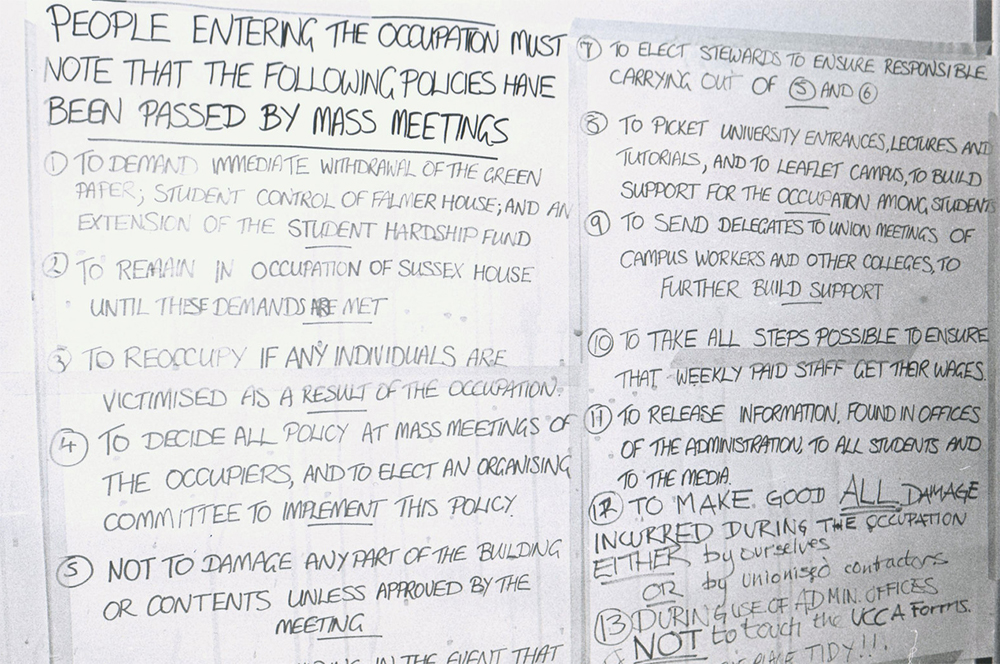 PEOPLE ENTERING THE OCCUPATION MUST
NOTE THAT THE FOLLOWING POLICIES HAVE
BEEN PASSED BY MASS MEETINGS
① TO DEMAND IMMEDIATE WITHDRAWAL OF THE GREEN
PAPER; STUDENT CONTROL OF FALMER HOUSE; AND AN
EXTENSION OF THE STUDENT HARDSHIP FUND
② TO REMAIN IN OCCUPATION OF SUSSEX HOUSE
UNTIL THESE DEMANDS ARE MET
③ TO REOCCUPY IF ANY INDIVIDUALS ARE
VICTIMISED AS A RESULT OF THE OCCUPATION.
④ TO DECIDE ALL POLICY AT MASS MEETINGS OF
THE OCCUPIERS, AND TO ELECT AN ORGANISING
COMMITTEE TO IMPLEMENT THIS POLICY.
⑤ NOT TO DAMAGE ANY PART OF THE BUILDING
OR CONTENTS UNLESS APPROVED BY THE
MEETING
IN THE EVENT THAT
⑦ TO ELECT STEWARDS TO ENSURE RESPONSIBLE
CARRYING OUT OF ⑤ AND ⑥
⑧ TO PICKET UNIVERSITY ENTRANCES, LECTURES AND
TUTORIALS, AND TO LEAFLET CAMPUS, TO BUILD
SUPPORT FOR THE OCCUPATION AMONG STUDENTS
⑨ TO SEND DELEGATES TO UNION MEETINGS OF
CAMPUS WORKERS AND OTHER COLLEGES, TO
FURTHER BUILD SUPPORT
⑩ TO TAKE ALL STEPS POSSIBLE TO ENSURE
THAT WEEKLY PAID STAFF GET THEIR WAGES.
⑪ TO RELEASE INFORMATION, FOUND IN OFFICES
OF THE ADMINISTRATION, TO ALL STUDENTS AND
TO THE MEDIA.
⑫ TO MAKE GOOD ALL DAMAGE
INCURRED DURING THE OCCUPATION
EITHER by ourselves
OR by unionised contractors
⑬ DURING USE OF ADMIN. OFFICES
NOT to touch the UCCA Forms.
PLACE TIDY!!!